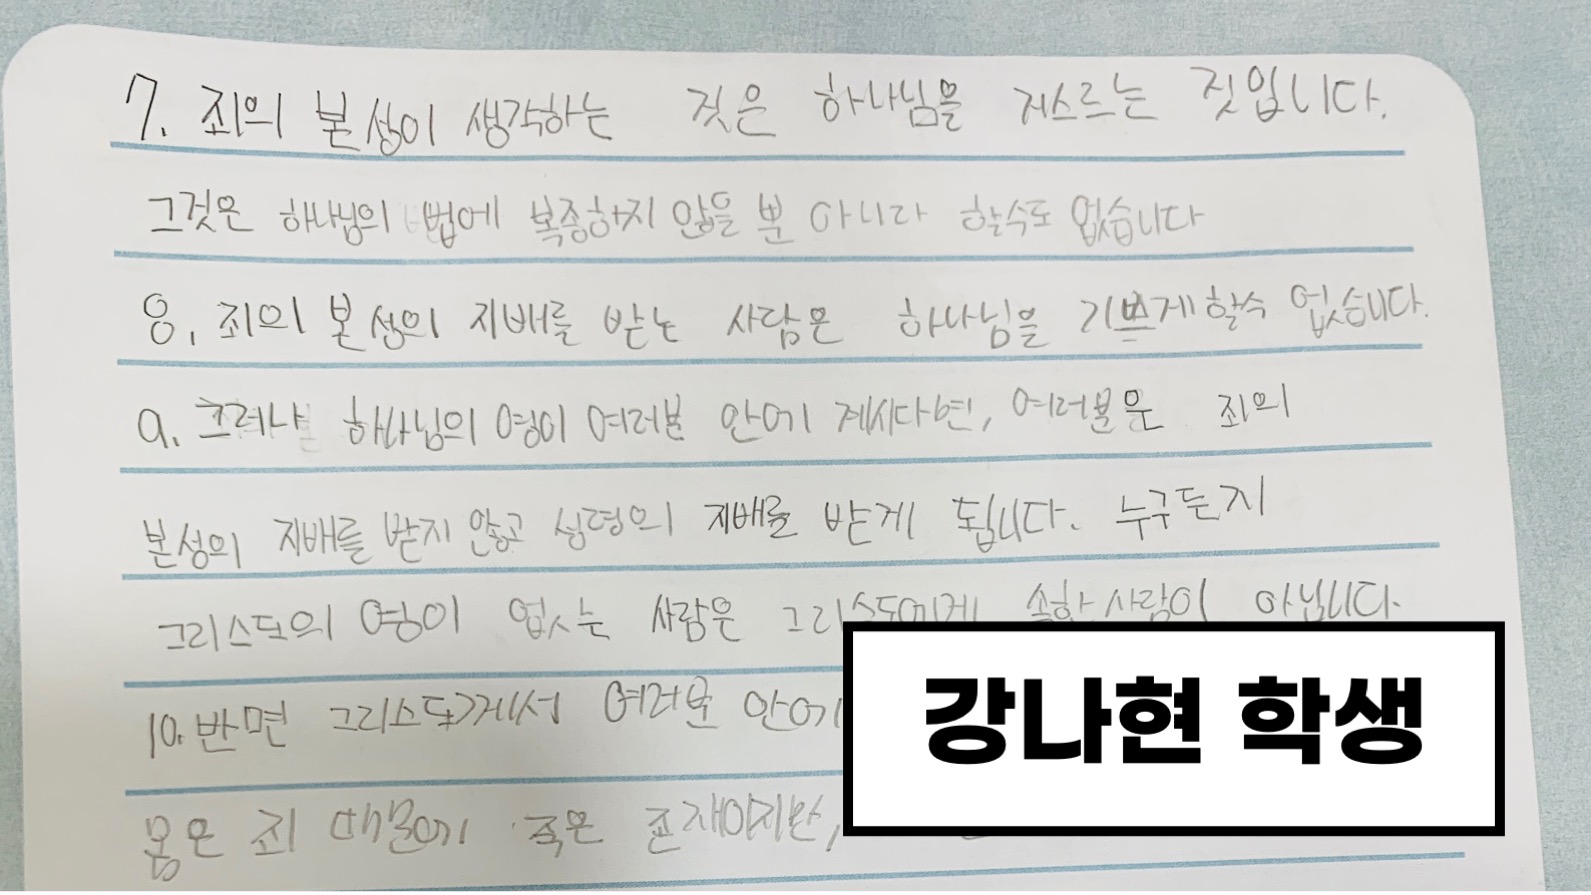 7. 죄의 본성이 생각하는 것은 하나님을 거스르는 짓입니다.
그것은 하나님의 법에 복종하지 않을 뿐 아니라 할수도 없습니다
8. 죄의 본성의 지배를 받는 사람은 하나님을 기쁘게할수 없습니다.
9. 그러나 하나님의 영이 여러분 안에 계시다면, 여러분은 죄의
본성의 지배를 받지 않고 성령의 지배를 받게 됩니다. 누구든지
그리스도의 영이 없는 사람은 그리스도에게 속한 사람이 아닙니다.
10. 반면 그리스도께서 여러분 안에
몸은 죄 때문에 죽은 존재이지만,
강나현 학생